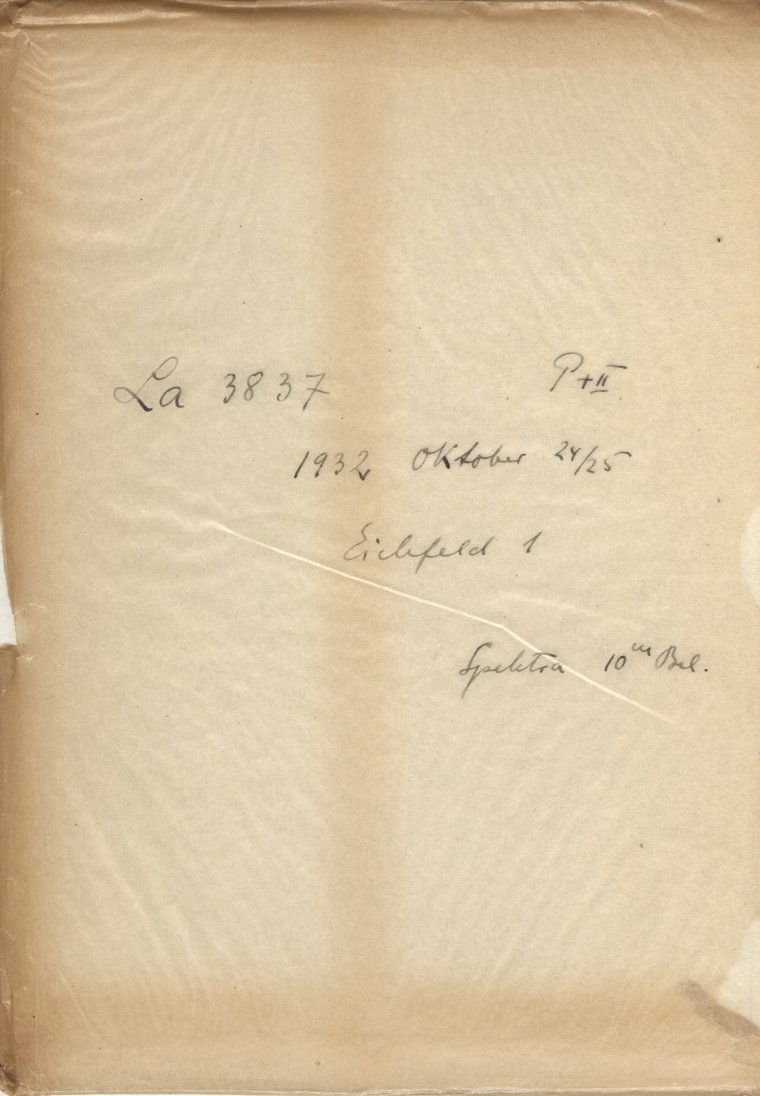 La 3837 P+II
1932 Oktober 24/25
Eichfeld 1
Spektra 10m Bel.